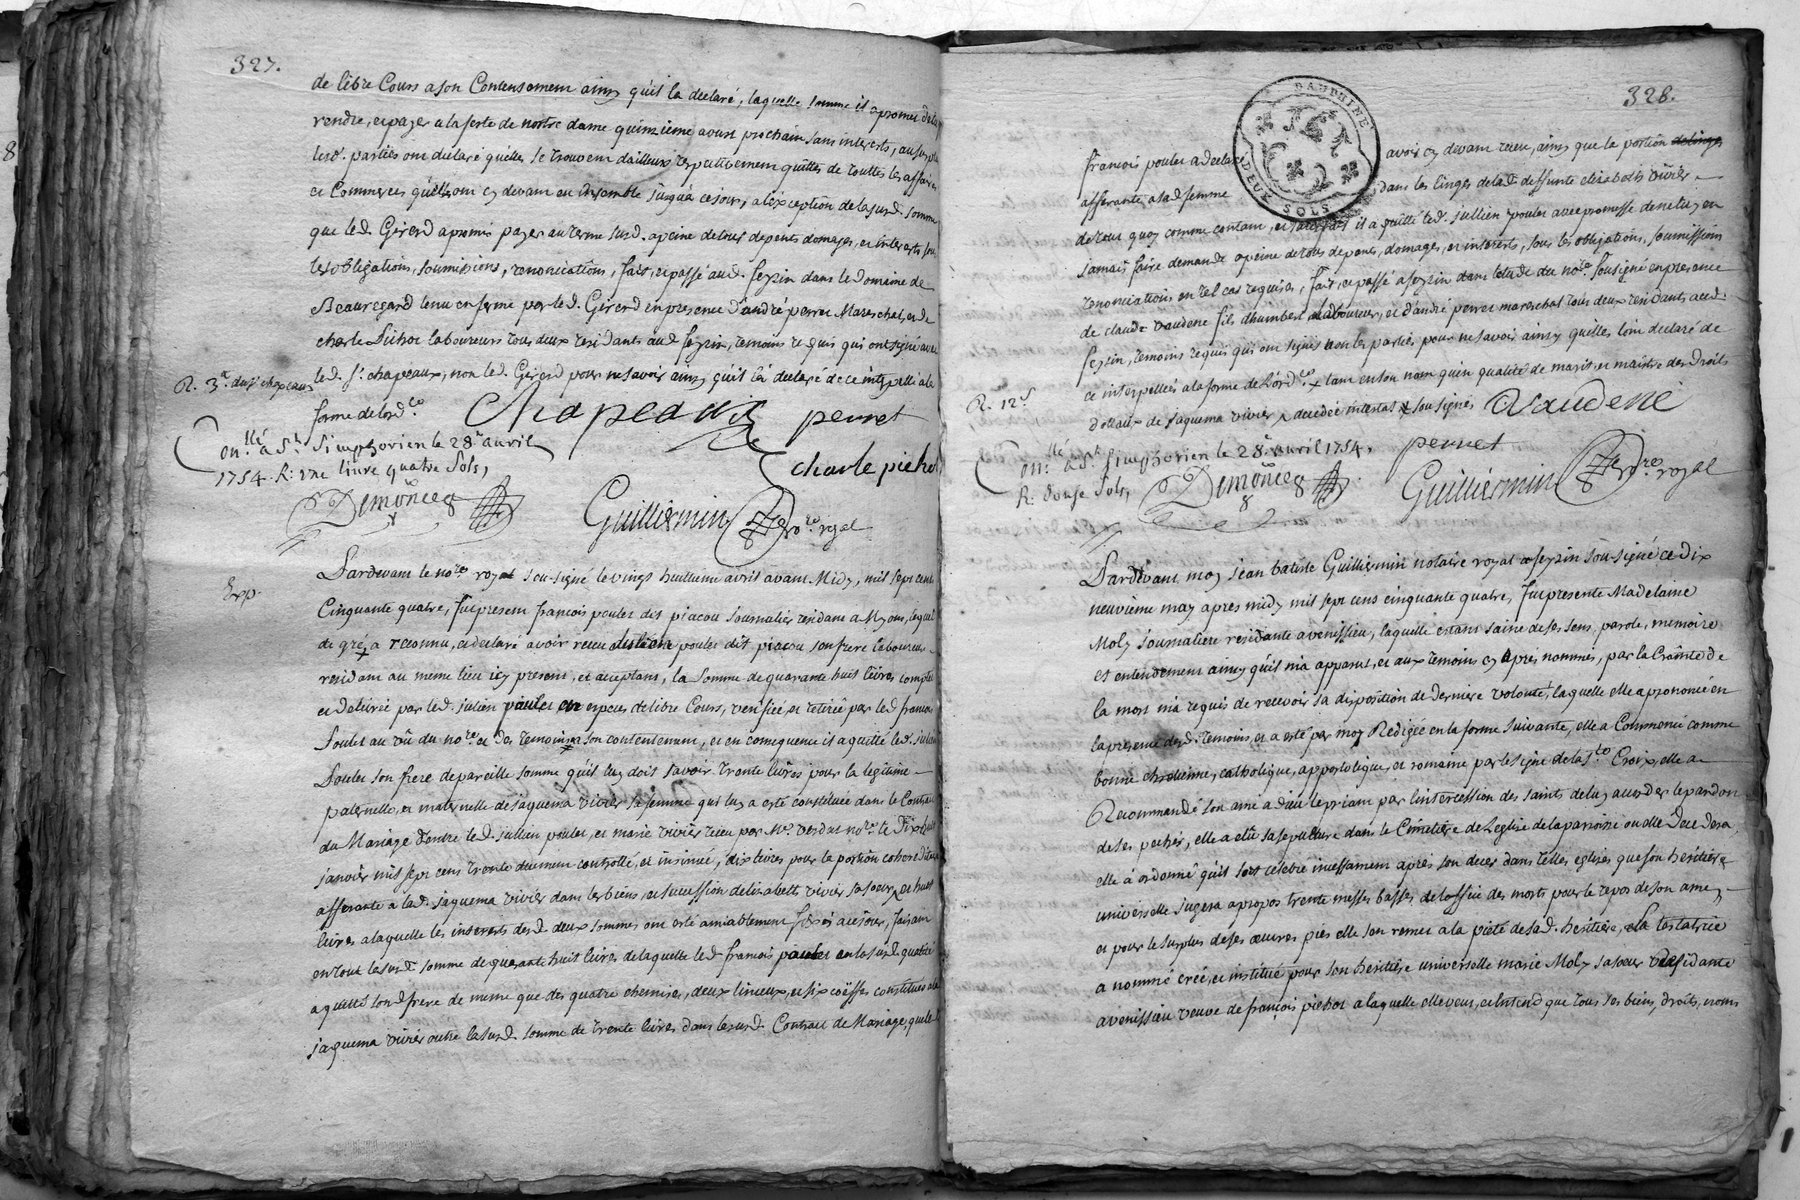 327.
de libre Cours a son Contentement ainsy qu'il la declaré, laquelle somme il a promet de luy
rendre, et payer a la feste de nostre dame quinzieme aoust prochain sans interests, au surplus
lesd. parties ont declaré quelles se trouvent dailleurs respectivement quittes de touttes les affaires
et Commerces quelles ont cy devant eu ensemble jusqua ce jour, a lexception de la susd. somme
que led. Gererd a promis payer au terme susd. a peine de tous depents domages, et interests sous
les obligations, soumissions, renonciations, fait, et passé aud. feyzin dans le domaine de
Beauregard tenu en ferme par led. Gererd en presence d'andré perret Mareschal, et de
charle Pichot laboureurs tous deux residants aud. feyzin, temoins requis qui ont signé avec
led. sr. chapeaux, non led. Gererd pour ne savoir ainsy qu'il la declaré de ce interpellé a la
forme de lord.ce
R. 3# du sr chapeaux
Chapeaux perret
charle pichot
Con.llé a St. Simphorien le 28e. avril
1754. R: une livre quatre sols,
Demonceg
Guilliermin no.re royal
Exp.
Pardevant le no.re royal sou-signé le vingt huitieme avril avant Midy, mil sept cent
Cinquante quatre, fut present françois poulet dit piacou Journalier residant a Myons, lequel
de gré a reconnu, et declaré avoir receu de julien poulet dit piacou son frere laboureur
residant au meme lieu icy present, et acceptant, la somme de quarante huit livres, comptée
et delivrée par led. julien poulet en especes de libre Cours, verifiée, et retirée par led. françois
Poulet au vû du no.re et des temoins a son contentement, et en consequence il a quitté led. julien
Poulet son frere de pareille somme qu'il luy doit savoir trente livres pour la legitime
paternelle, et maternelle de jaquema vivier sa femme qui luy a esté constituée dans le Contrat
du Mariage d'entre led. jullien poulet, et marie vivier receu par Me. verdat no.re le dix huit
janvier mil sept cent trente duement controllé, et insinué, dix livres pour la portion cohereditaire
afferante a lad. jaquema vivier dans les biens, et succession delizabeth vivier sa soeur, et huit
livres a laquelle les interests desd. deux sommes ont esté amiablement fixés a ce jour, faisant
en tout lasusd. somme de quarante huit livres de laquelle led. françois poulet en la susd. qualité
a quitté sond. frere de meme que des quatre chemises, deux linceux, et six coëffes constituées a lad.
jaquema vivier outre la susd. somme de trente livres dans le susd. Contrat de Mariage, que led.
328.
DAUPHINE
DEUX SOLS
françois poulet a declaré avoir cy devant receu, ainsy que la portion
afferante a sad. femme dans les linges de lad. deffunte elizabeth vivier
de tout quoy comme contant, et satisfait il a quitté led. jullien poulet avec promesse de ne luy en
jamais faire demande a peine de tous depens, domages, et interests, sous les obligations, soumissions
renonciations en tel cas requises, fait, et passé a feyzin dans letude du no.re sousigné en presence
de claude vaudene fils dhumbert laboureur, et d'andré perret mareschal tous deux residants aud.
feyzin, temoins requis qui ont signé non les parties pour ne savoir ainsy quelles, l'ont declaré de
ce interpellés a la forme de l'ord.ce x tant en son nom qu'en qualité de marit, et maistre des droits
dotaux de jaquema vivier x decedée intestat x sousignés Vaudene
R. 12s.
Con.llé a St. Simphorien le 28e. avril 1754,
R: douse sols,
perret
Demonceg
Guilliermin no.re royal
Pardevant moy jean batiste Guilliermin notaire royal a feyzin sou-signé ce dix
neuvieme may apres midy mil sept cens cinquante quatre, fut presente Madelaine
Moly journaliere residante a venissieu, laquelle estant saine de ses sens, parole, memoire
et entendement ainsy qu'il m'a apparut, et aux temoins cy apres nommés, par la Crainte de
la mort m'a requis de recevoir sa disposition de derniere volonté, laquelle elle a prononcé en
la presence desd. temoins, et a esté par moy Redigée en la forme suivante, elle a Commencé comme
bonne chretienne, catholique, appostolique, et romaine par le signe de la Ste. Croix, elle a
Recommandé son ame a dieu le priant par lintercession des saints de luy accorder le pardon
de ses pechés, elle a elû sa sepulture dans le Cimetiere de l'eglise de la parroisse ou elle decedera,
elle à ordonné qu'il soit celebré incessament apres son deces dans telles eglises que son heritiere
universelle jugera a propos trente messes basses de loffice des morts pour le repos de son ame,
et pour le surplus de ses œuvres pies elle s'en remet a la pieté de sad. heritiere, la testatrice
a nommé créé, et institué pour son heritiere universelle marie Moly sa soeur residante
a venissieu veuve de françois pichot a laquelle elle veut, et entend que tous ses biens, droits, noms